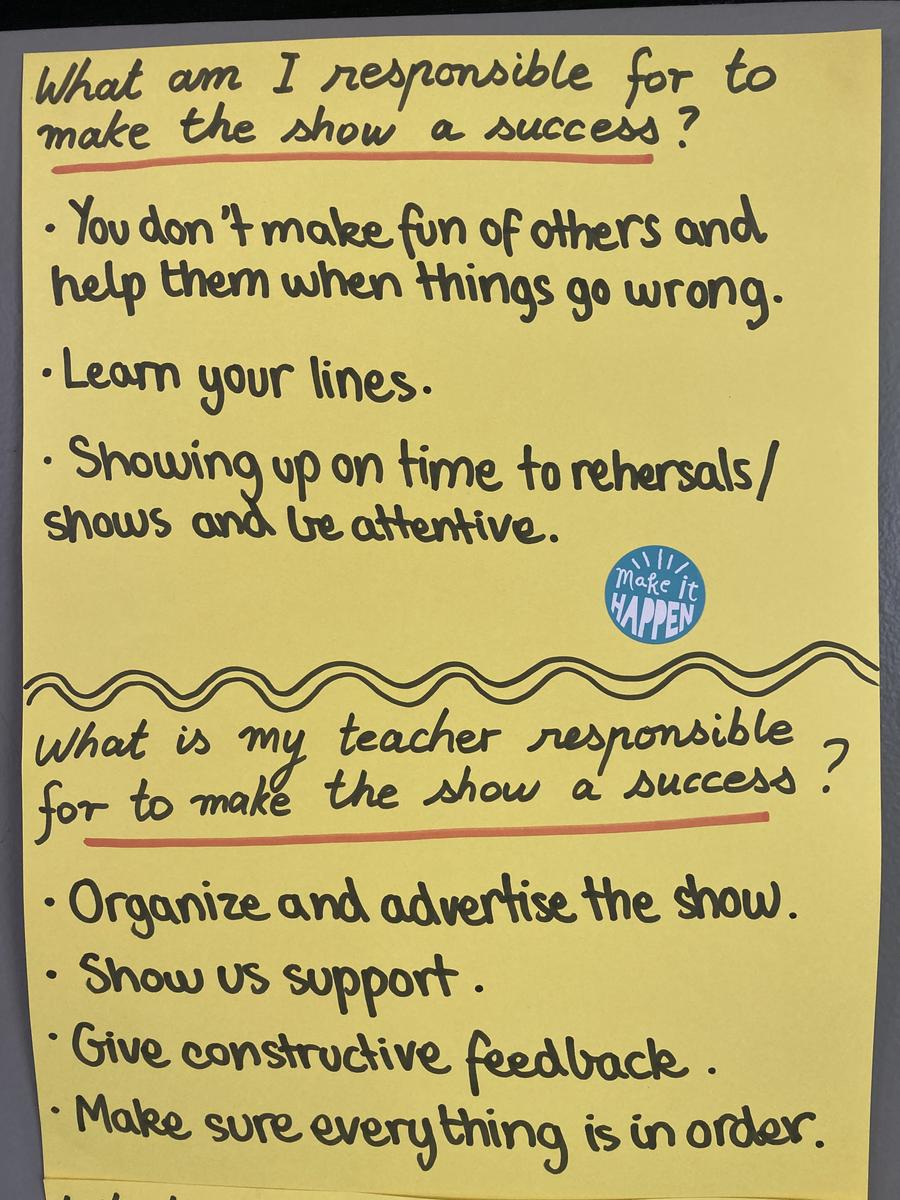 What am I responsible for to
make the show a success?
· You don't make fun of others and
help them when things go wrong.
· Learn your lines.
· Showing up on time to rehersals/
shows and be attentive.
make it
HAPPEN
What is my teacher responsible
for to make the show a success?
· Organize and advertise the show.
· Show us support.
· Give constructive feedback.
· Make sure everything is in order.